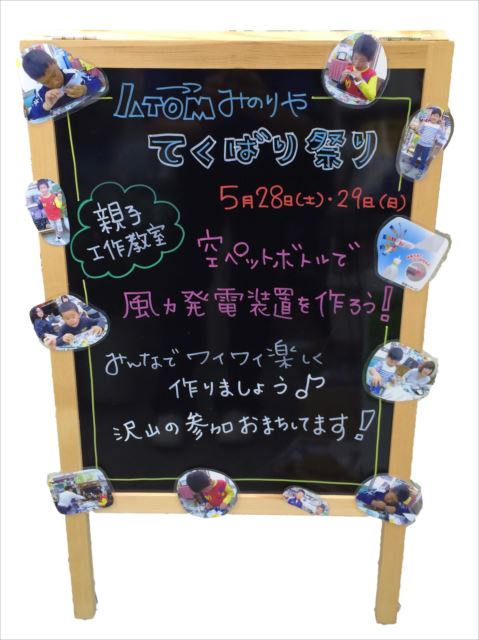 ATOMみのりや
てくばり祭り
5月28日(土)・29日(日)
親子
工作教室
空ペットボトルで
風力発電装置を作ろう!
みんなでワイワイ楽しく
作りましょう♪
沢山の参加おまちしてます!